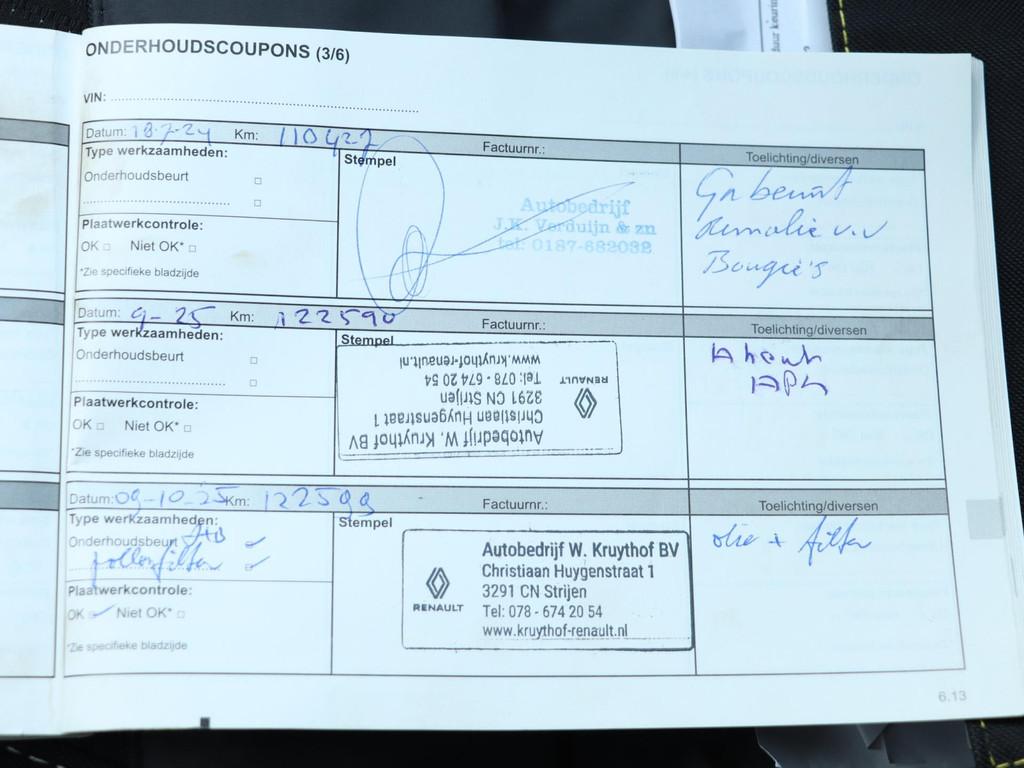 ONDERHOUDSCOUPONS (3/6)
VIN:
Datum: 18-7-24 Km: 110427 Factuurnr.: Toelichting/diversen
Type werkzaamheden:
Onderhoudsbeurt
Plaatwerkcontrole:
OK Niet OK*
*Zie specifieke bladzijde
Stempel
Autobedrijf
J.K. Verduijn & zn
tel: 0187-682032
v.v
Bougie's
Datum: 9-25 Km: 122590 Factuurnr.: Toelichting/diversen
Type werkzaamheden:
Onderhoudsbeurt
Plaatwerkcontrole:
OK Niet OK*
*Zie specifieke bladzijde
Stempel
Autobedrijf W. Kruythof BV
Christiaan Huygenstraat 1
3291 CN Strijen
Tel: 078 - 674 20 54
www.kruythof-renault.nl
RENAULT
APK
Datum: 09-10-25 Km: 122599 Factuurnr.: Toelichting/diversen
Type werkzaamheden:
Onderhoudsbeurt
pollenfilter
Plaatwerkcontrole:
OK Niet OK*
*Zie specifieke bladzijde
Stempel
RENAULT
Autobedrijf W. Kruythof BV
Christiaan Huygenstraat 1
3291 CN Strijen
Tel: 078 - 674 20 54
www.kruythof-renault.nl
olie + filter
6.13